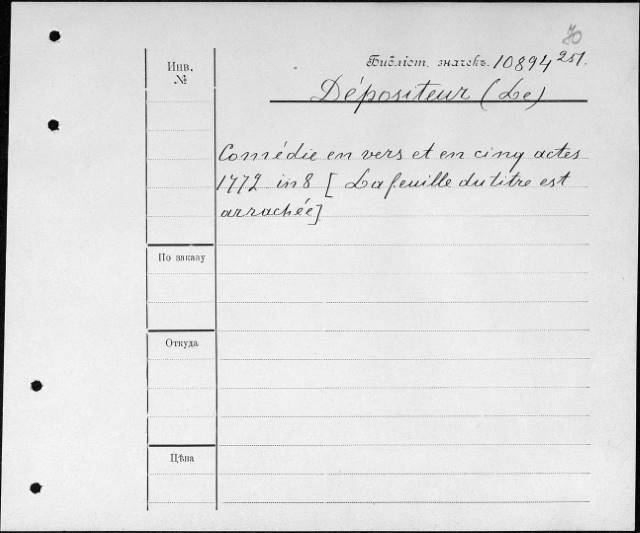 70
Инв.
№
Библіот. значекъ. 10894 251.
Dépositeur (Le)
Comédie en vers et en cinq actes
1772 in 8 [La feuille du titre est
arrachée]
По заказу
Откуда
Цѣна